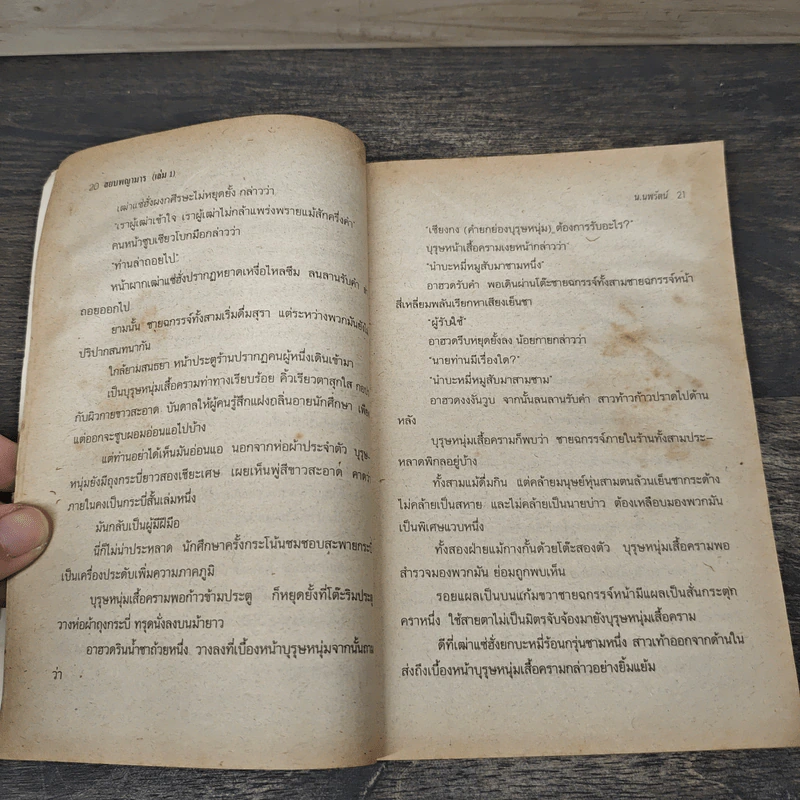 20 ขอบพญามาร (เล่ม 1)
เฒ่าแซ่ฮั่งผงกศีรษะไม่หยุดยั้ง กล่าวว่า
"เราผู้เฒ่าเข้าใจ เราผู้เฒ่าไม่กล้าแพร่งพรายแม้สักครึ่งคำ"
คนหน้าซูบเซียวโบกมือกล่าวว่า
"ท่านล่าถอยไป"
หน้าผากเฒ่าแซ่ฮั่งปรากฏหยาดเหงื่อไหลซึม ลนลานรับคำ
ถอยออกไป
ยามนั้น ชายฉกรรจ์ทั้งสามเริ่มดื่มสุรา แต่ระหว่างพวกมันยัง
ปริปากสนทนากัน
ใกล้ยามสนธยา หน้าประตูร้านปรากฏคนผู้หนึ่งเดินเข้ามา
เป็นบุรุษหนุ่มเสื้อครามท่าทางเรียบร้อย คิ้วเรียวตาสุกใส
กับผิวกายขาวสะอาด บันดาลให้ผู้คนรู้สึกแฝงกลิ่นอายนักศึกษา เพียง
แต่ออกจะซูบผอมอ่อนแอไปบ้าง
แต่ท่านอย่าได้เห็นมันอ่อนแอ นอกจากห่อผ้าประจำตัว บุรุษ
หนุ่มยังมีถุงกระบี่ยาวสองเชียะเศษ เผยเห็นพู่สีขาวสะอาด คาดว่า
ภายในคงเป็นกระบี่สั้นเล่มหนึ่ง
มันกลับเป็นผู้มีฝีมือ
นี่ก็ไม่น่าประหลาด นักศึกษาครั้งกระโน้นชมชอบสะพายกระบี่
เป็นเครื่องประดับเพิ่มความภาคภูมิ
บุรุษหนุ่มเสื้อครามพอก้าวข้ามประตู ก็หยุดยั้งที่โต๊ะริมประตู
วางห่อผ้าถุงกระบี่ ทรุดนั่งลงบนม้ายาว
อาฮวดรินน้ำชาถ้วยหนึ่ง วางลงที่เบื้องหน้าบุรุษหนุ่มจากนั้นถาม
ว่า
น.นพรัตน์ 21
"เซียงกง (คำยกย่องบุรุษหนุ่ม) ต้องการรับอะไร?"
บุรุษหน้าเสื้อครามเงยหน้ากล่าวว่า
"นำบะหมี่หมูสับมาชามหนึ่ง"
อาฮวดรับคำ พอเดินผ่านโต๊ะชายฉกรรจ์ทั้งสามชายฉกรรจ์หน้า
สี่เหลี่ยมพลันเรียกหาเสียงเย็นชา
"ผู้รับใช้"
อาฮวดรีบหยุดยั้งลง น้อยกายกล่าวว่า
"นายท่านมีเรื่องใด?"
"นำบะหมี่หมูสับมาสามชาม"
อาฮวดงงงันวูบ จากนั้นลนลานรับคำ สาวท้าวก้าวปราดไปด้าน
หลัง
บุรุษหนุ่มเสื้อครามก็พบว่า ชายฉกรรจ์ภายในร้านทั้งสามประ-
หลาดพิกลอยู่บ้าง
ทั้งสามแม้ดื่มกิน แต่คล้ายมนุษย์หุ่นสามตนล้วนเย็นชากระด้าง
ไม่คล้ายเป็นสหาย และไม่คล้ายเป็นนายบ่าว ต้องเหลือบมองพวกมัน
เป็นพิเศษแวบหนึ่ง
ทั้งสองฝ่ายแม้กางกั้นด้วยโต๊ะสองตัว บุรุษหนุ่มเสื้อครามพอ
สำรวจมองพวกมัน ย่อมถูกพบเห็น
รอยแผลเป็นบนแก้มขวาชายฉกรรจ์หน้ามีแผลเป็นสั่นกระตุก
คราหนึ่ง ใช้สายตาไม่เป็นมิตรจับจ้องมายังบุรุษหนุ่มเสื้อคราม
ดีที่เฒ่าแซ่ฮั่งยกบะหมี่ร้อนกรุ่นชามหนึ่ง สาวเท้าออกจากด้านใน
ส่งถึงเบื้องหน้าบุรุษหนุ่มเสื้อครามกล่าวอย่างยิ้มแย้ม